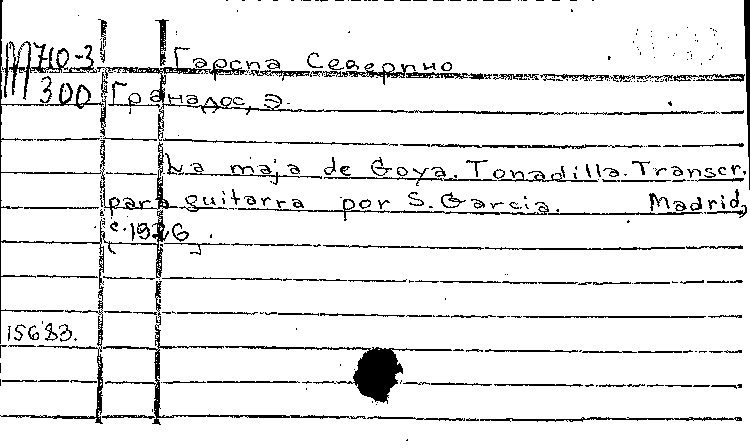 М 710-3 Гарспа, Северпно
300 Гранадос, Э.
La maja de Goya. Tonadilla. Transcr.
para guitarra por S. Garcia. Madrid,
[c.1926].
15683.